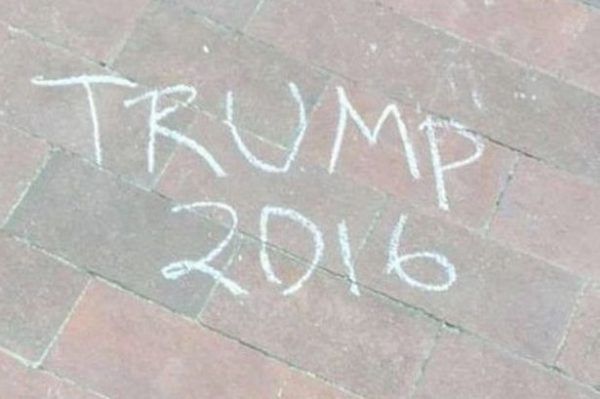 TRUMP
2016